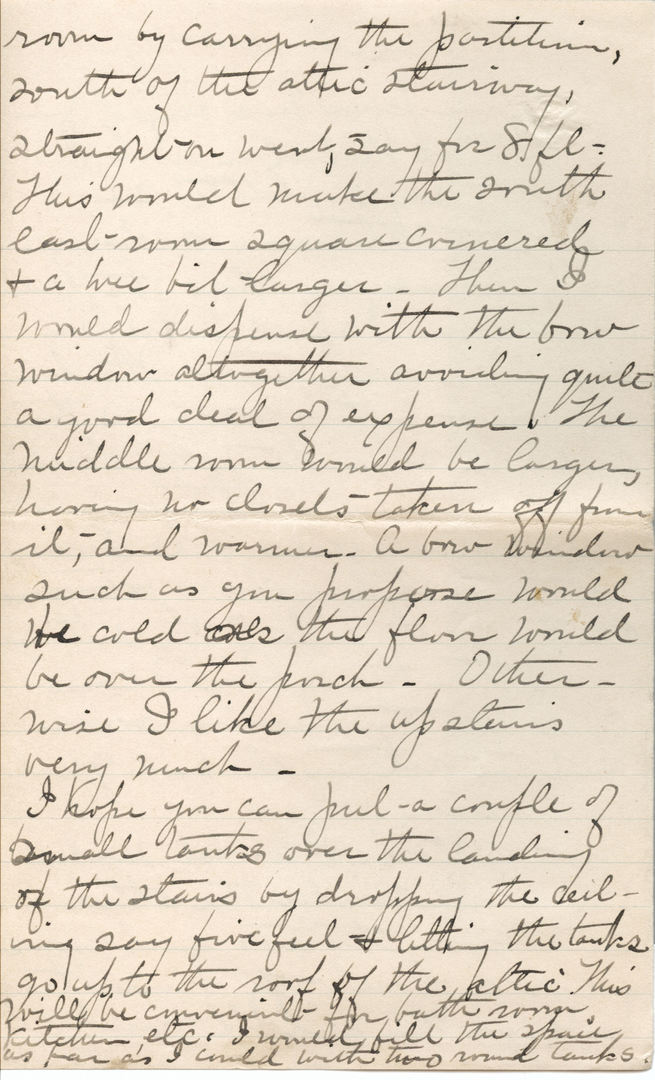 room by carrying the partition,
south of the attic stairway,
straight on west, say for 8 ft -
This would make the south
east room square cornered
+ a wee bit larger - Then I
would dispense with the bow
window altogether avoiding quite
a good deal of expense. The
middle room would be larger,
having no closets taken off from
it, and warmer. A bow window
such as you propose would
be cold as the floor would
be over the porch - Other-
wise I like the upstairs
very much -
I hope you can put a couple of
small tanks over the landing
of the stairs by dropping the ceil-
ing say five feet & letting the tanks
go up to the roof of the attic This
will be convenient for bath room,
kitchen, etc. I would fill the space
as far as I could with two round tanks.